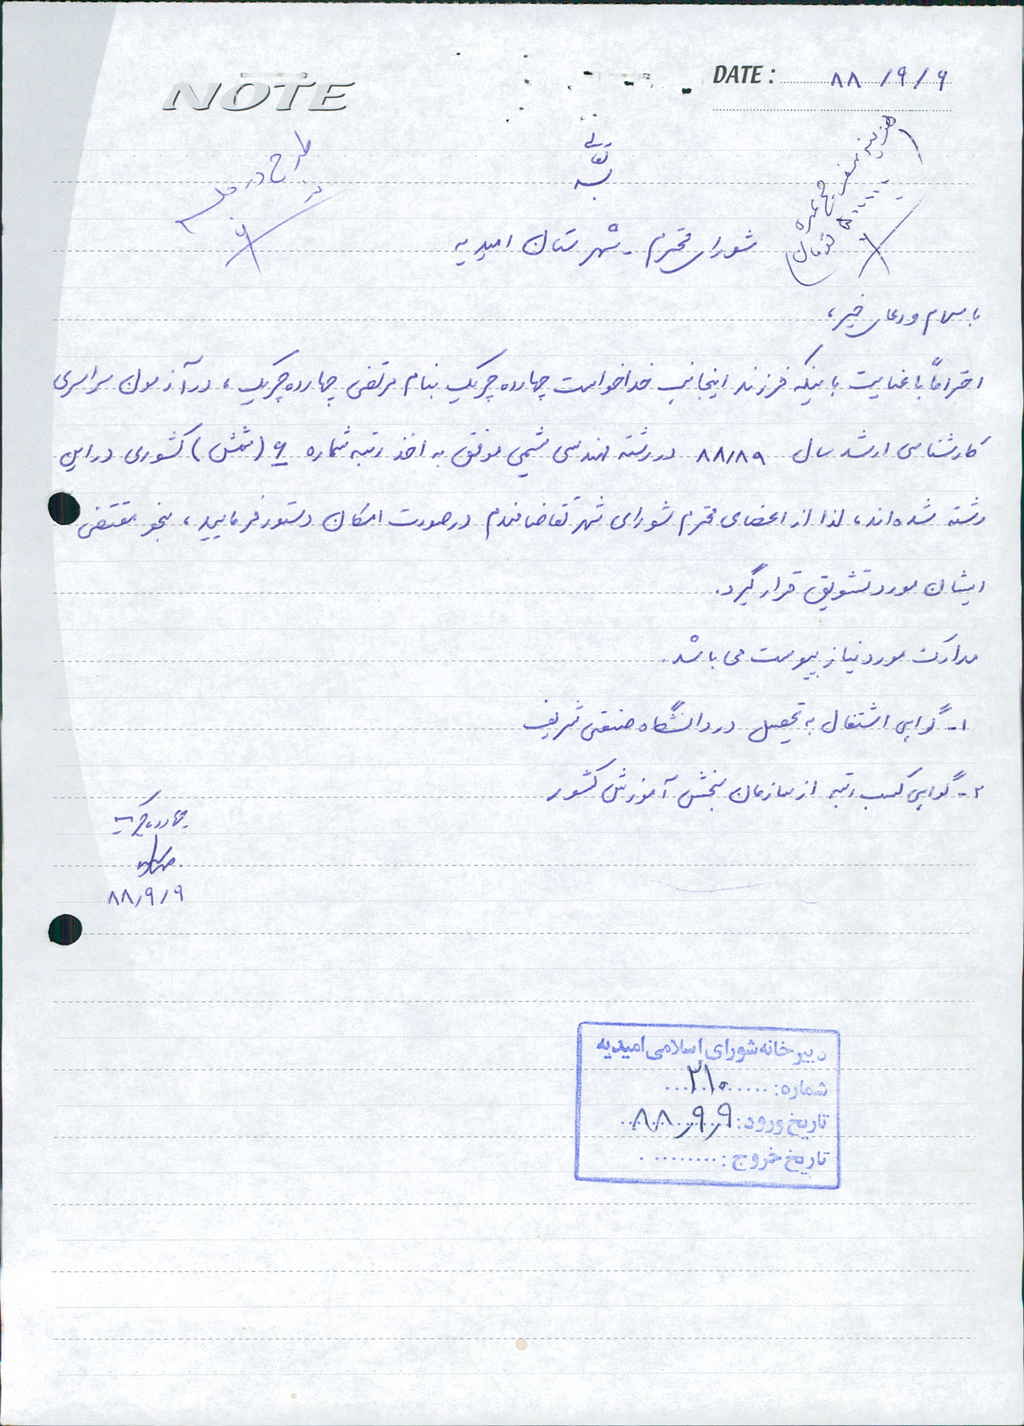 NOTE
DATE: ۸۸/۹/۹
بسمه تعالی
هزینه سفر حج عمره
تومان
طرح در جلسه
شورای محترم - شهرستان امیدیه
با سلام و دعای خیر،
احتراماً با عنایت باینکه فرزند اینجانب خداخواست چهارده چریک بنام مرتضی چهارده چریک، در آزمون سراسری
کارشناسی ارشد سال ۸۸/۸۹ در رشته مهندسی شیمی موفق به اخذ رتبه شماره ۶ (شش) کشوری در این
رشته شده‌اند، لذا از اعضای محترم شورای شهر تقاضامندم درصورت امکان دستور فرمایید، بنحو مقتضی
ایشان مورد تشویق قرار گیرد.
مدارک مورد نیاز پیوست می باشد.
۱- گواهی اشتغال به تحصیل در دانشگاه صنعتی شریف
۲- گواهی کسب رتبه از سازمان سنجش آموزش کشور
چهارده چریک
۸۸/۹/۹
دبیرخانه شورای اسلامی امیدیه
شماره: ۲۱۰
تاریخ ورود: ۸۸/۹/۹
تاریخ خروج: